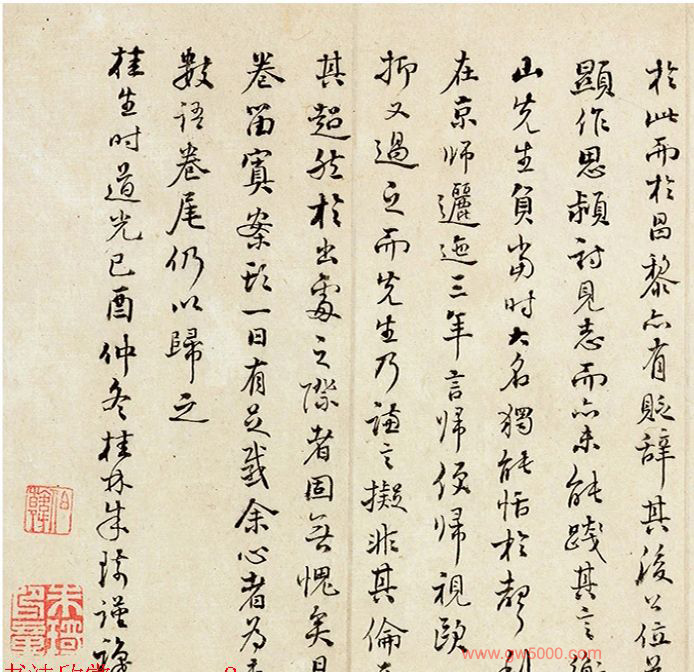 於此而於昌黎亦有貶辭其後公位
顯作思潁詩見志而亦未能踐其言
山先生負當時大名獨能恬於聲利
在京師邐迤三年言歸便歸視歐
抑又過之而先生乃謙言擬非其倫
其超然於出處之際者固無愧矣
卷留寘案頭一日有足感余心者為
數語卷尾仍以歸之
桂生時道光己酉仲冬桂林朱琦謹識
伯韓
www.gw5000.com
书法欣赏